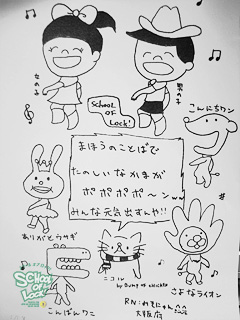 女の子
男の子
SCHOOL
OF
LOCK!
こんにちワン
まほうのことばで
たのしいなかまが
ポポポポ〜ンww
みんな元気出すんや!!
ありがとウサギ
ニコル
by Bump of chicken
さよなライオン
こんばんワニ
大阪府
SCHOOL
OF
LOCK!